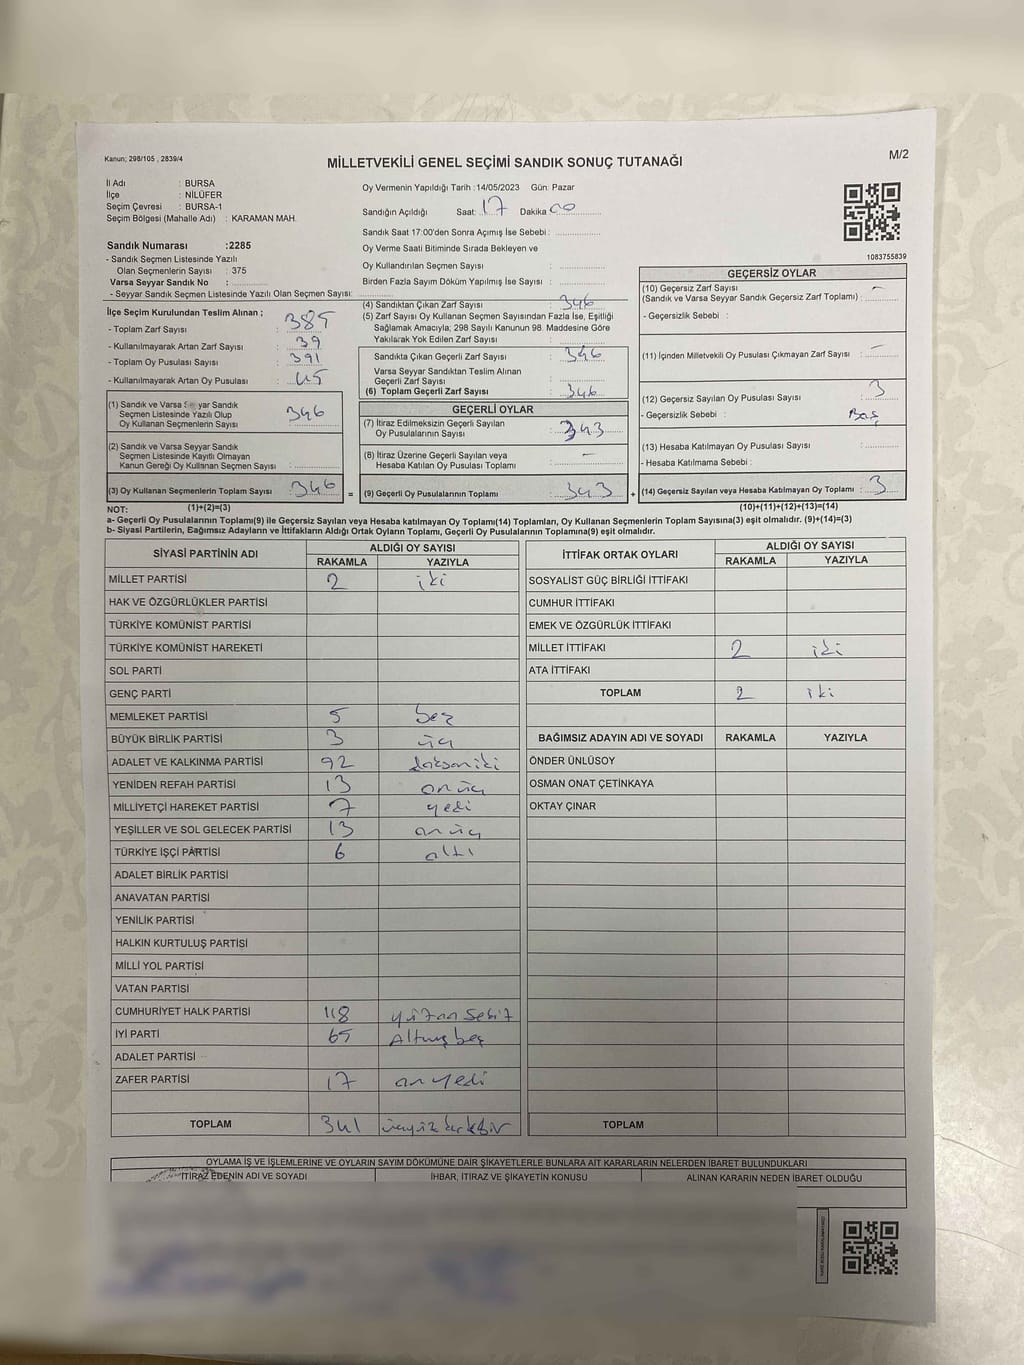 Kanun; 298/105 , 2839/4
MİLLETVEKİLİ GENEL SEÇİMİ SANDIK SONUÇ TUTANAĞI
M/2
İl Adı : BURSA
İlçe : NİLÜFER
Seçim Çevresi : BURSA-1
Seçim Bölgesi (Mahalle Adı) : KARAMAN MAH.
Sandık Numarası :2285
- Sandık Seçmen Listesinde Yazılı
Olan Seçmenlerin Sayısı : 375
Varsa Seyyar Sandık No :
- Seyyar Sandık Seçmen Listesinde Yazılı Olan Seçmen Sayısı:
Oy Vermenin Yapıldığı Tarih :14/05/2023 Gün: Pazar
Sandığın Açıldığı Saat: 17 Dakika 00
Sandık Saat 17:00'den Sonra Açımış İse Sebebi :
Oy Verme Saati Bitiminde Sırada Bekleyen ve
Oy Kullandırılan Seçmen Sayısı :
Birden Fazla Sayım Döküm Yapılmış İse Sayısı :
1083755839
İlçe Seçim Kurulundan Teslim Alınan ;
- Toplam Zarf Sayısı : 385
- Kullanılmayarak Artan Zarf Sayısı : 39
- Toplam Oy Pusulası Sayısı : 391
- Kullanılmayarak Artan Oy Pusulası : 45
(1) Sandık ve Varsa Seyyar Sandık
Seçmen Listesinde Yazılı Olup
Oy Kullanan Seçmenlerin Sayısı : 346
(2) Sandık ve Varsa Seyyar Sandık
Seçmen Listesinde Kayıtlı Olmayan
Kanun Gereği Oy Kullanan Seçmen Sayısı :
(3) Oy Kullanan Seçmenlerin Toplam Sayısı : 346
(4) Sandıktan Çıkan Zarf Sayısı : 346
(5) Zarf Sayısı Oy Kullanan Seçmen Sayısından Fazla İse, Eşitliği
Sağlamak Amacıyla; 298 Sayılı Kanunun 98. Maddesine Göre
Yakılarak Yok Edilen Zarf Sayısı :
Sandıkta Çıkan Geçerli Zarf Sayısı : 346
Varsa Seyyar Sandıktan Teslim Alınan
Geçerli Zarf Sayısı :
(6) Toplam Geçerli Zarf Sayısı : 346
GEÇERLİ OYLAR
(7) İtiraz Edilmeksizin Geçerli Sayılan
Oy Pusulalarının Sayısı : 343
(8) İtiraz Üzerine Geçerli Sayılan veya
Hesaba Katılan Oy Pusulası Toplamı : -
= (9) Geçerli Oy Pusulalarının Toplamı : 343
GEÇERSİZ OYLAR
(10) Geçersiz Zarf Sayısı
(Sandık ve Varsa Seyyar Sandık Geçersiz Zarf Toplamı) : -
- Geçersizlik Sebebi :
(11) İçinden Milletvekili Oy Pusulası Çıkmayan Zarf Sayısı : -
(12) Geçersiz Sayılan Oy Pusulası Sayısı : 3
- Geçersizlik Sebebi : Boş
(13) Hesaba Katılmayan Oy Pusulası Sayısı :
- Hesaba Katılmama Sebebi :
+ (14) Geçersiz Sayılan veya Hesaba Katılmayan Oy Toplamı : 3
NOT: (1)+(2)=(3)
(10)+(11)+(12)+(13)=(14)
a- Geçerli Oy Pusulalarının Toplamı(9) ile Geçersiz Sayılan veya Hesaba katılmayan Oy Toplamı(14) Toplamları, Oy Kullanan Seçmenlerin Toplam Sayısına(3) eşit olmalıdır. (9)+(14)=(3)
b- Siyasi Partilerin, Bağımsız Adayların ve İttifakların Aldığı Ortak Oyların Toplamı, Geçerli Oy Pusulalarının Toplamına(9) eşit olmalıdır.
SİYASİ PARTİNİN ADI
ALDIĞI OY SAYISI
RAKAMLA YAZIYLA
MİLLET PARTİSİ 2 iki
HAK VE ÖZGÜRLÜKLER PARTİSİ
TÜRKİYE KOMÜNİST PARTİSİ
TÜRKİYE KOMÜNİST HAREKETİ
SOL PARTİ
GENÇ PARTİ
MEMLEKET PARTİSİ 5 beş
BÜYÜK BİRLİK PARTİSİ 3 üç
ADALET VE KALKINMA PARTİSİ 92 doksaniki
YENİDEN REFAH PARTİSİ 13 onüç
MİLLİYETÇİ HAREKET PARTİSİ 7 yedi
YEŞİLLER VE SOL GELECEK PARTİSİ 13 onüç
TÜRKİYE İŞÇİ PARTİSİ 6 altı
ADALET BİRLİK PARTİSİ
ANAVATAN PARTİSİ
YENİLİK PARTİSİ
HALKIN KURTULUŞ PARTİSİ
MİLLİ YOL PARTİSİ
VATAN PARTİSİ
CUMHURİYET HALK PARTİSİ 118 yüzon sekiz
İYİ PARTİ 65 Altmış beş
ADALET PARTİSİ
ZAFER PARTİSİ 17 on yedi
TOPLAM 341 üçyüz kırkbir
İTTİFAK ORTAK OYLARI
ALDIĞI OY SAYISI
RAKAMLA YAZIYLA
SOSYALİST GÜÇ BİRLİĞİ İTTİFAKI
CUMHUR İTTİFAKI
EMEK VE ÖZGÜRLÜK İTTİFAKI
MİLLET İTTİFAKI 2 iki
ATA İTTİFAKI
TOPLAM 2 iki
BAĞIMSIZ ADAYIN ADI VE SOYADI RAKAMLA YAZIYLA
ÖNDER ÜNLÜSOY
OSMAN ONAT ÇETİNKAYA
OKTAY ÇINAR
TOPLAM
OYLAMA İŞ VE İŞLEMLERİNE VE OYLARIN SAYIM DÖKÜMÜNE DAİR ŞİKAYETLERLE BUNLARA AİT KARARLARIN NELERDEN İBARET BULUNDUKLARI
İTİRAZ EDENİN ADI VE SOYADI
İHBAR, İTİRAZ VE ŞİKAYETİN KONUSU
ALINAN KARARIN NEDEN İBARET OLDUĞU